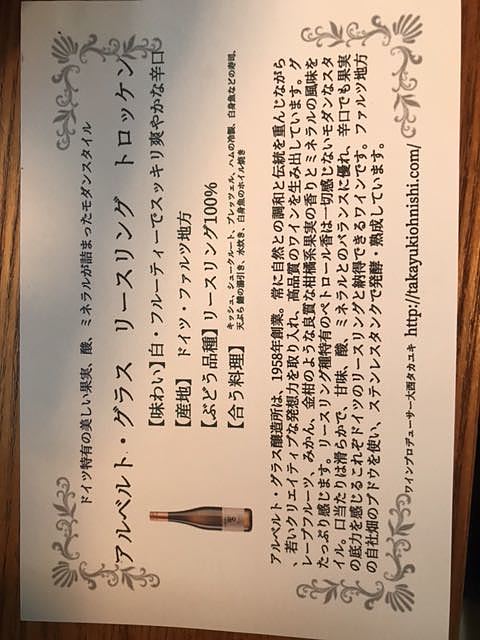 ドイツ特有の美しい果実、酸、ミネラルが詰まったモダンスタイル
アルベルト・グラス リースリング トロッケン
【味わい】白・フルーティーでスッキリ爽やかな辛口
【産地】 ドイツ・ファルツ地方
【ぶどう品種】リースリング100%
【合う料理】キッシュ、シュークルート、プレッツェル、ハムの冷製、白身魚などの寿司、
天ぷら 鱧の湯引き、水炊き、白身魚のホイル焼き
アルベルト・グラス醸造所は、1958年創業。常に自然との調和と伝統を重んじながら
、若いクリエイティブな発想力を取り入れ、高品質のワインを生み出しています。グ
レープフルーツ みかん、金柑のような良質な柑橘系果実の香りとミネラルの風味を
たっぷり感じます。リースリング種特有のペトロール香は一切感じないモダンなスタ
イル。口当たりは滑らかで、甘味、酸、ミネラルとのバランスに優れ、辛口でも果実
の底力を感じるこれぞドイツのリースリングと納得できるワインです。ファルツ地方
の自社畑のブドウを使い、ステンレスタンクで発酵・熟成しています。
ワインプロデューサー大西タカユキ http://takayukiohnishi.com/